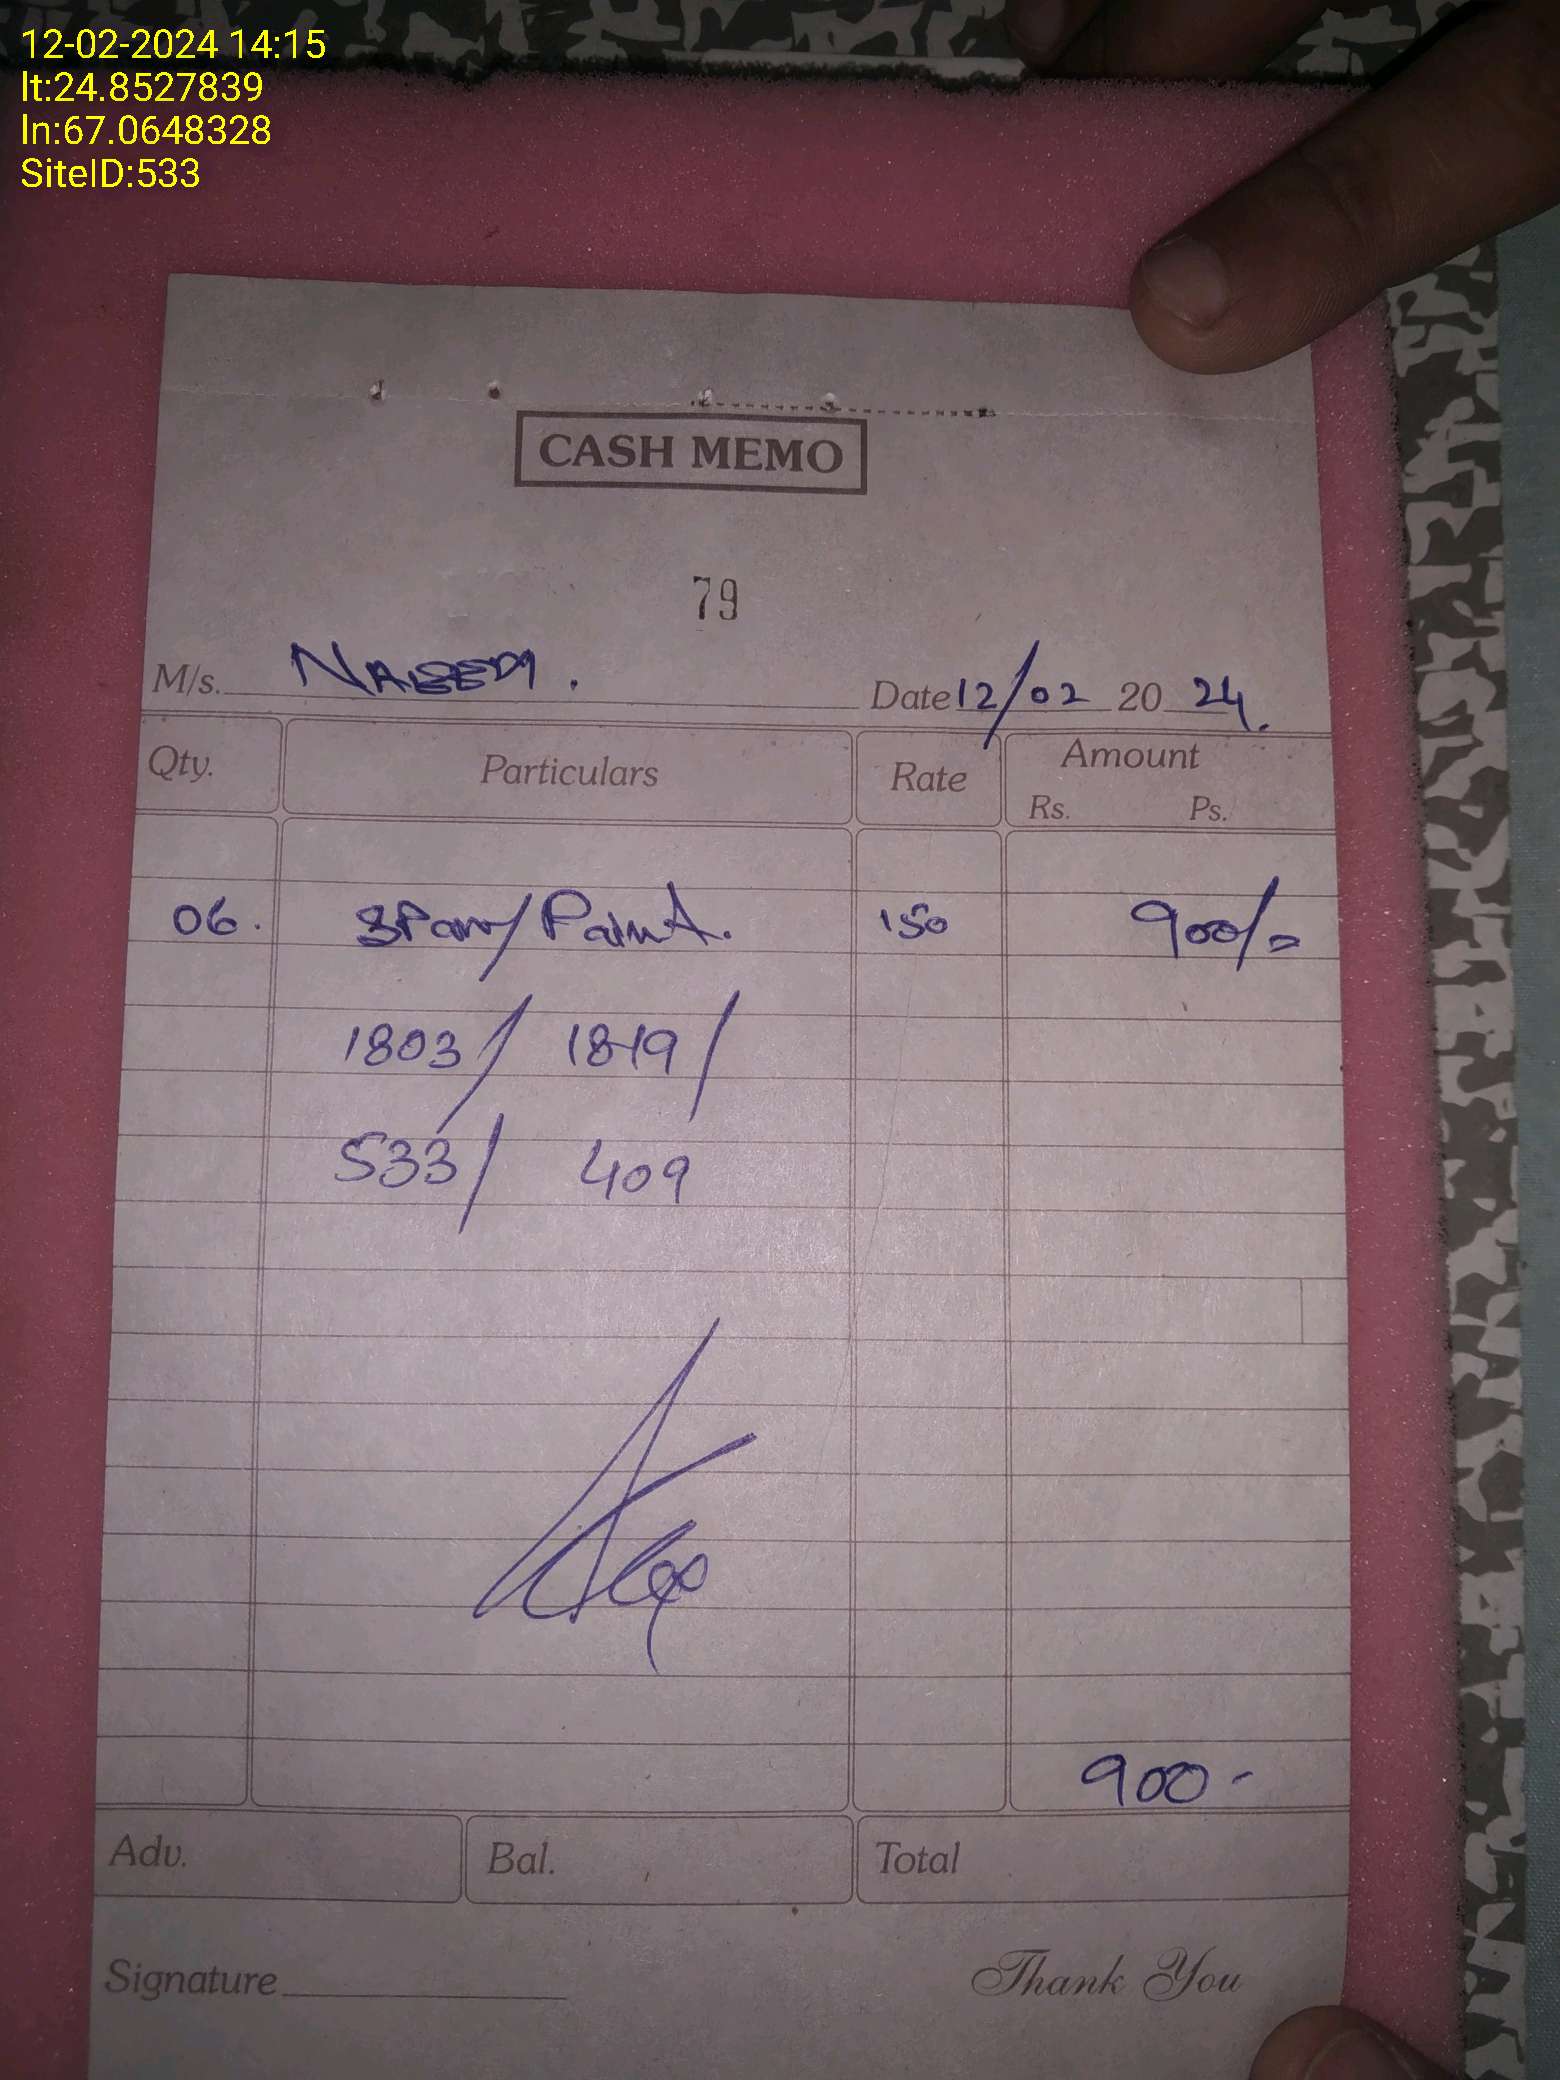 12-02-2024 14:15
lt:24.8527839
ln:67.0648328
SiteID:533
CASH MEMO
79
M/s. NAEEM. Date 12/02 20 24.
Qty. Particulars Rate Amount
Rs. Ps.
06. SPary/Paint. 150 900/=
1803/ 1819/
533/ 409
900-
Adv. Bal. Total
Signature Thank You